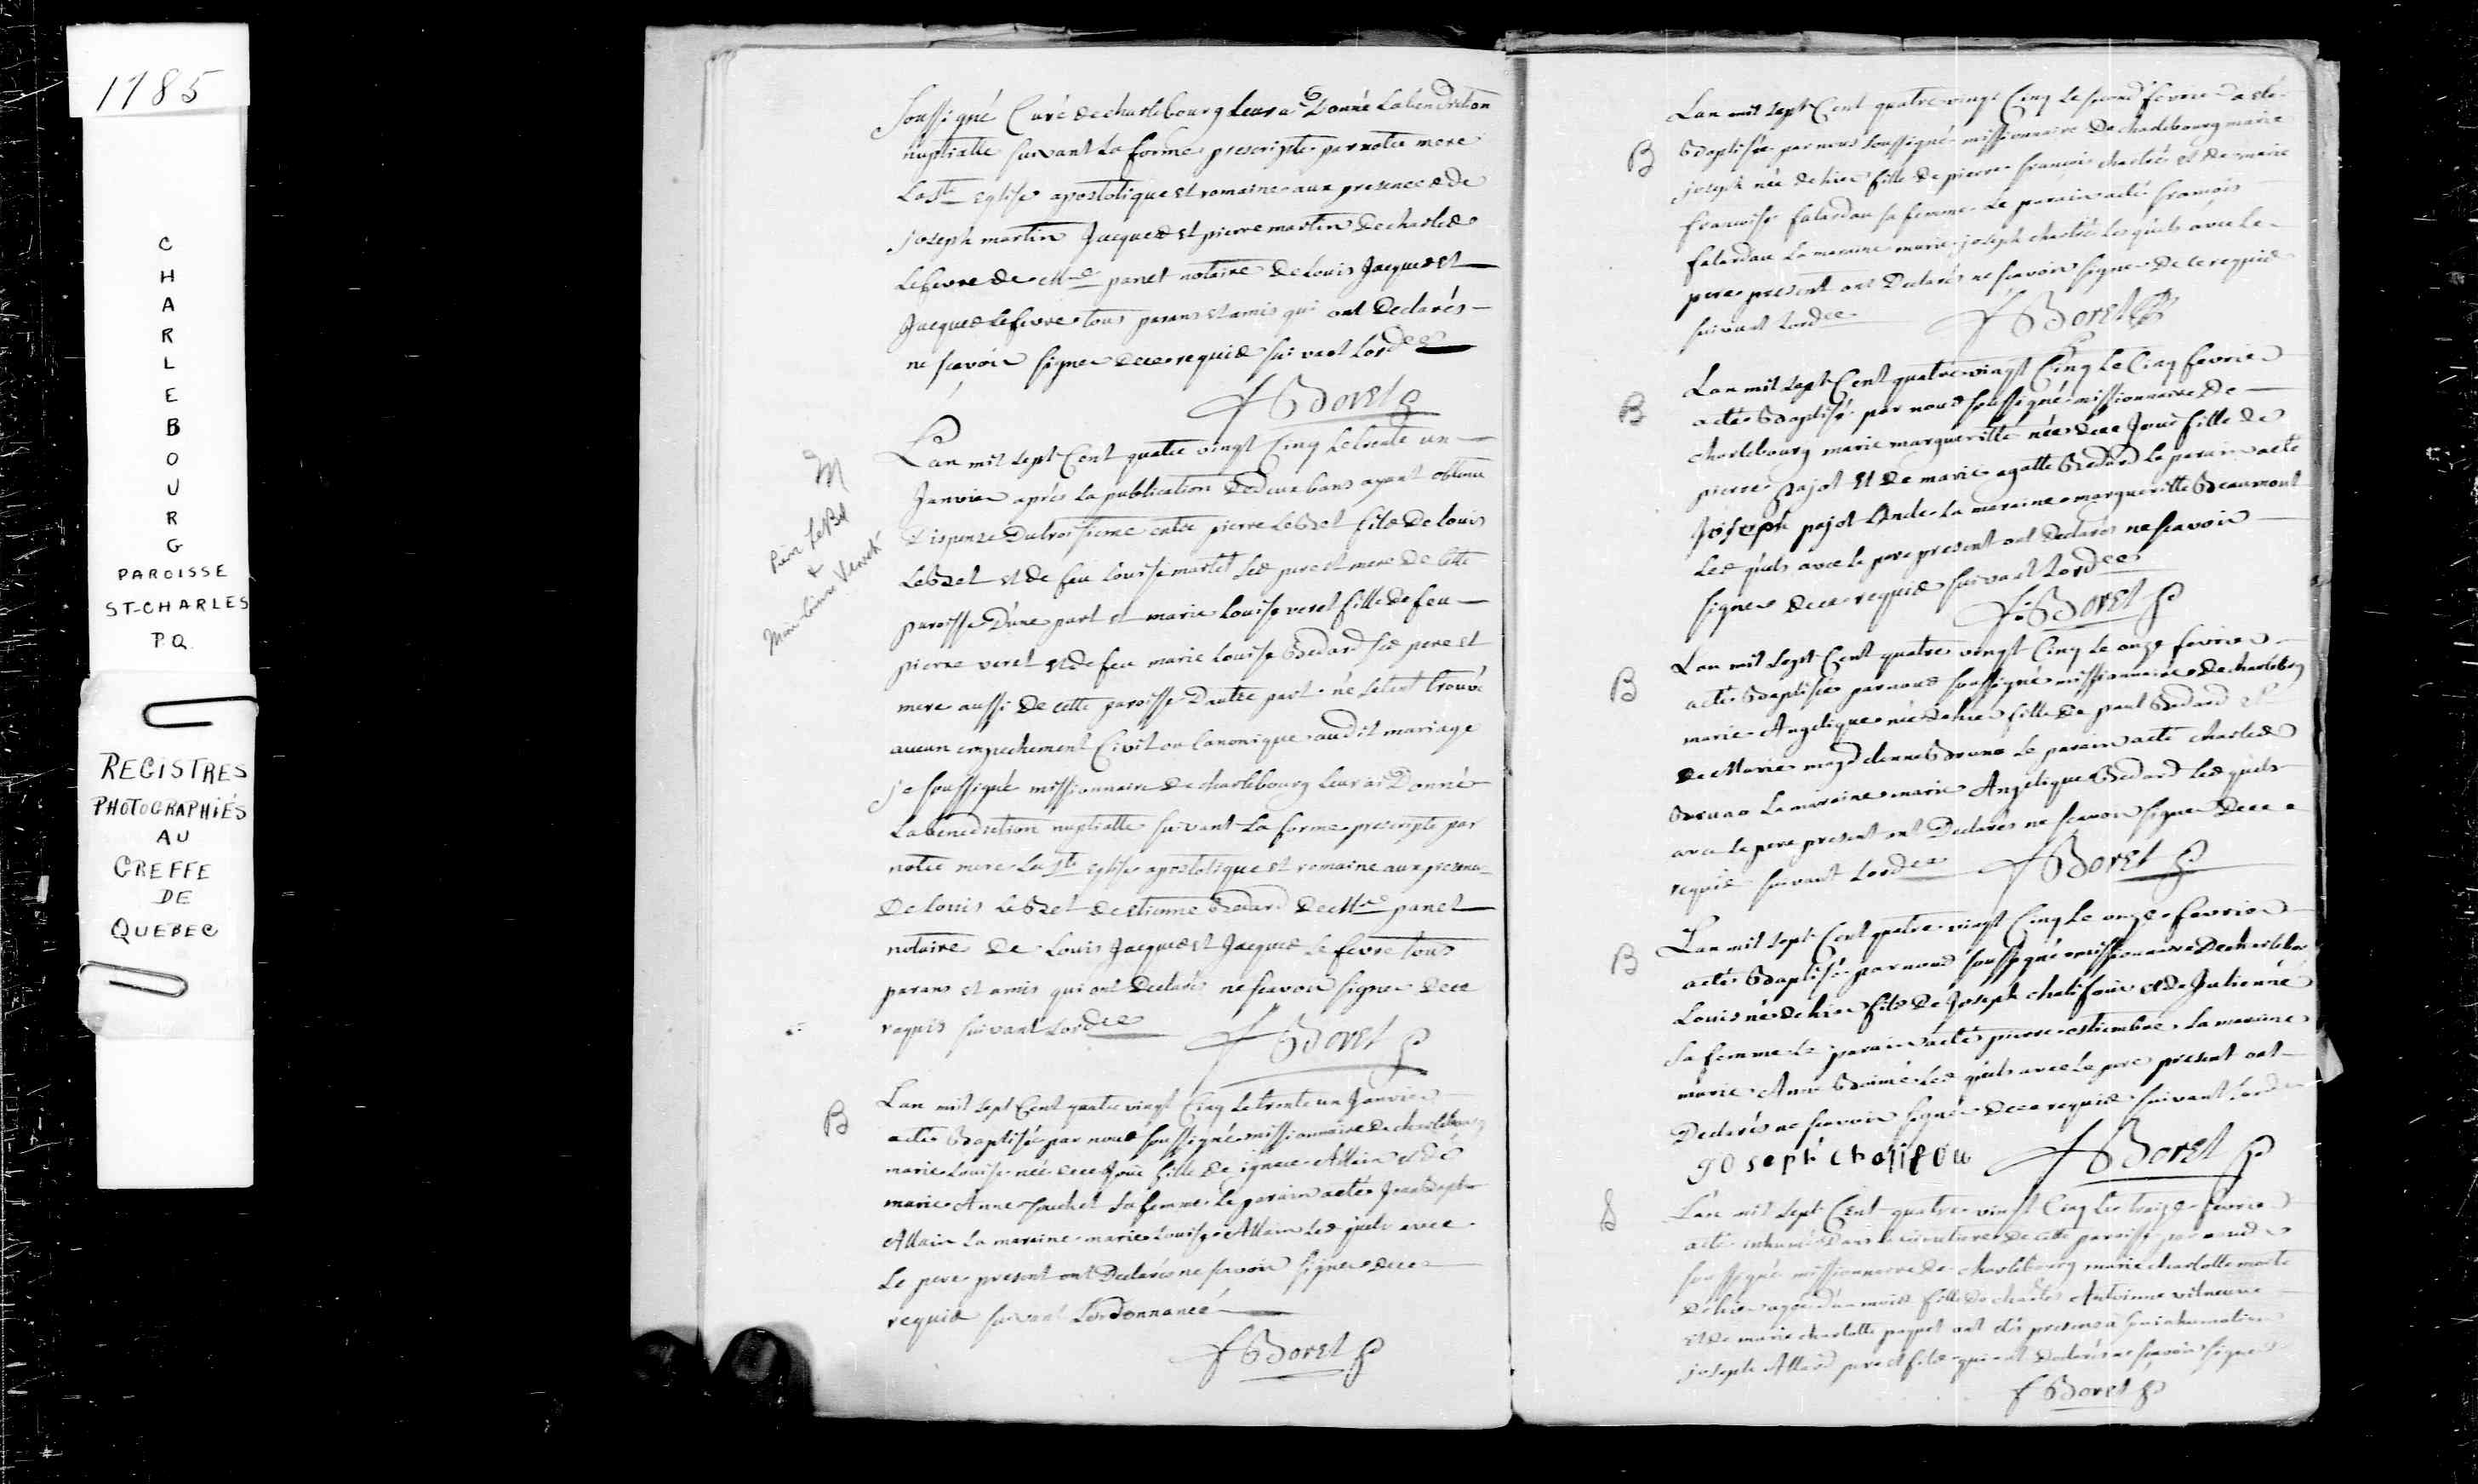 1785
CHARLEBOURG
PAROISSE
ST-CHARLES
P.Q.
REGISTRES
PHOTOGRAPHIÉS
AU
GREFFE
DE
QUEBEC
soussigné Curé de charlebourg leur ai Donné La benediction
nuptialle suivant La forme prescripte par notre mere
La Ste eglise apostolique et romaine aux presences de
joseph martin Jacques et pierre martin De charles
Lefevre de Mre panet notaire De Louis Jacques et
Jacques Lefevre tous parans et amis qui ont Declarés
ne scavoir signer de ce requis suivant Lordce
f Boret p
M
Pierre LeBel
&
Marie Louise Verret
Lan mil sept Cent quatre vingt Cinq Le trente un
Janvier aprés La publication De deux bans ayant obtenu
Dispense Du troisieme entre pierre LeBel fils De louis
LeBel et de feu Louise martel ses pere et mere de Cette
paroisse D'une part et marie Louise veret fille de feu
pierre veret et de feu marie Louise Bedard ses pere et
mere aussi De cette paroisse Dautre part ne setent trouvé
aucun empechement Civil ou Canonique audit mariage
je soussigné missionnaire de charlebourg leur ai Donné
La benediction nuptialle suivant La forme prescripte par
notre mere La Ste eglise apostolique et romaine aux presences
De louis LeBel de etienne Bedard De Mre panet
notaire De Louis Jacques et Jacques Lefevre tous
parans et amis qui ont Declarés ne scavoir signer De ce
requis suivant Lordce
f Boret p
B
Lan mil sept Cent quatre vingt Cinq Le trente un Janvier
a eté Baptisée par nous soussigné missionnaire De charlebourg
marie Louise née de ce Jour fille De ignace Allain et de
marie Anne sa femme Le parain a eté Jean Bapte
Allain La maraine marie Louise Allain Les quels avec
Le pere present ont Declarés ne scavoir signer de ce
requis suivant Lordonnance
f Boret p
B
Lan mil sept Cent quatre vingt Cinq Le second fevrier a eté
Baptisée par nous soussigné missionnaire De charlebourg marie
joseph née de hier fille de pierre françois chartré et de marie
francoise falardau sa femme Le parain a eté françois
falardau La maraine marie joseph chartré Les quels avec Le
pere present ont Declarés ne scavoir signer De ce requis
suivant Lordce
f Boret p
B
Lan mil sept Cent quatre vingt Cinq Le Cinq fevrier
a eté Baptisé par nous soussigné missionnaire De
charlebourg marie marguerite née de ce Jour fille De
pierre pajot et De marie agatte Bedard Le parain a eté
Joseph pajot La maraine marguerite Beaumont
Les quels avec Le pere present ont Declarés ne scavoir
signer de ce requis suivant Lordce
f Boret p
B
Lan mil sept Cent quatre vingt Cinq Le onze fevrier
a eté Baptisée par nous soussigné missionnaire De charlebrg
marie Angelique née De hier fille De paul Bedard et
De Marie magdelenne Bruno Le parain a eté charles
Bruno La maraine marie Angelique Bedard Les quels
avec Le pere present ont Declarés ne scavoir signer De ce
requis suivant Lordce
f Boret p
B
Lan mil sept Cent quatre vingt Cinq Le onze fevrier
a eté Baptisé par nous soussigné missionnaire De charlebou
Louis né De hier fils De Joseph chalifour et de Julienne
sa femme Le parain a eté pierre La maraine
marie Anne Les quels avec Le pere present ont
Declarés ne scavoir signer De ce requis suivant Lordce
Joseph chalifou
f Boret p
S
Lan mil sept Cent quatre vingt Cinq Le treize fevrier
a eté inhumé Dans Le cimetiere De cette paroisse par nous
soussigné missionnaire de charlebourg marie charlotte morte
De hier agée d'un mois fille De charles Antoinne vilneuve
et De marie charlotte paquet ont etés presens a son inhumation
joseph Allard pere et fils qui ont Declarés ne scavoir signer
f Boret p